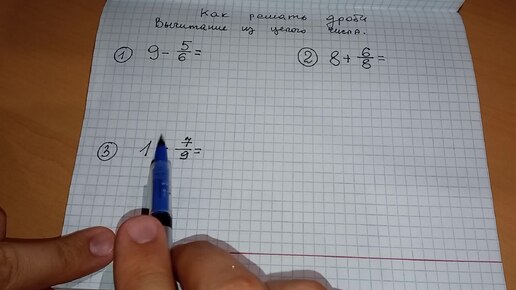 Как решать дроби
Вычитание из целого числа.
① 9 - 5/6 = ② 8 + 6/8 =
③ 1 - 7/9 =